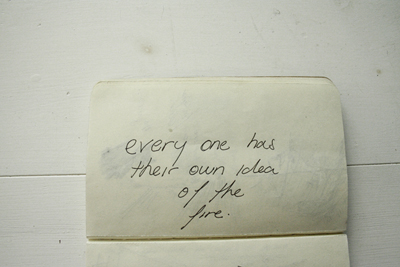 every one has
their own idea
of the
fire.